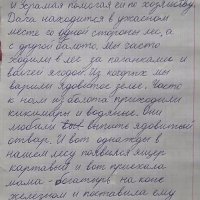 и хромая помогая ей по хозяйству.
Дача находится в ужасном
месте со одной стороны лес, а
с другой болото. Мы часто
ходили в лес за поганками и
волчей ягодой. Из которых мы
варили ядовитое зелье. Часто
к нам из болота приходили
кикиморы и водяные. Они
любили выпить ядовитый
отвар. И вот однажды в
нашем лесу появился ящер
картавый и вот приехала
мома - богатырь на коне
железном и поставила ему